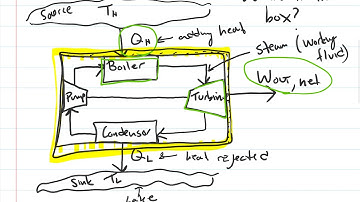 Source T_H
box?
Q_H ← adding heat
steam (Working
fluid)
Boiler
W_out, net
Pump
Turbin
Condensor
Q_L ← heat rejected
Sink T_L
lake